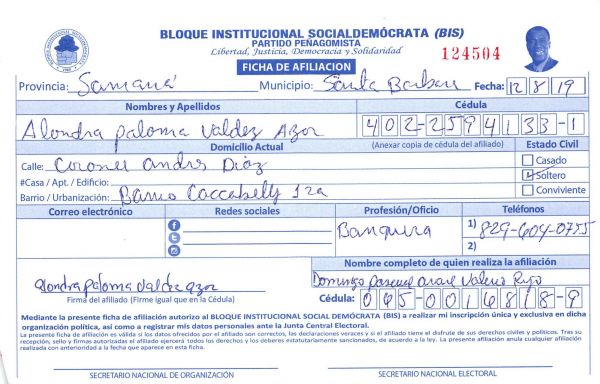 BLOQUE INSTITUCIONAL SOCIALDEMÓCRATA (BIS)
PARTIDO PEÑAGOMISTA
Libertad, Justicia, Democracia y Solidaridad
124504
FICHA DE AFILIACION
Provincia: Samaná Municipio: Santa Barbara Fecha: 12 8 19
Nombres y Apellidos Cédula
Alondra paloma Valdez Azor 402-2594133-1
Domicilio Actual (Anexar copia de cédula del afiliado) Estado Civil
Calle: Coronel Andrs Diaz Casado
#Casa / Apt. / Edificio: Soltero
Barrio / Urbanización: Barrio 1ra Conviviente
Correo electrónico Redes sociales Profesión/Oficio Teléfonos
Banquera 1) 829-604-0755
2)
Nombre completo de quien realiza la afiliación
Alondra paloma valdez azor Domingo Valerio
Firma del afiliado (Firme igual que en la Cédula) Cédula: 065-0014818-9
Mediante la presente ficha de afiliación autorizo al BLOQUE INSTITUCIONAL SOCIAL DEMÓCRATA (BIS) a realizar mi inscripción única y exclusiva en dicha
organización política, así como a registrar mis datos personales ante la Junta Central Electoral.
La presente ficha de afiliación es válida si los datos ofrecidos por el afiliado son correctos, las declaraciones veraces y si el afiliado tiene el disfrute de sus derechos civiles y políticos. Tras su
recepción, sello y firmas autorizadas el afiliado ejercerá todos los derechos y los deberes estatutariamente sancionados, de acuerdo a la ley. La presente afiliación anula cualquier afiliación
realizada con anterioridad a la fecha que aparece en esta ficha.
SECRETARIO NACIONAL DE ORGANIZACIÓN SECRETARIO NACIONAL ELECTORAL